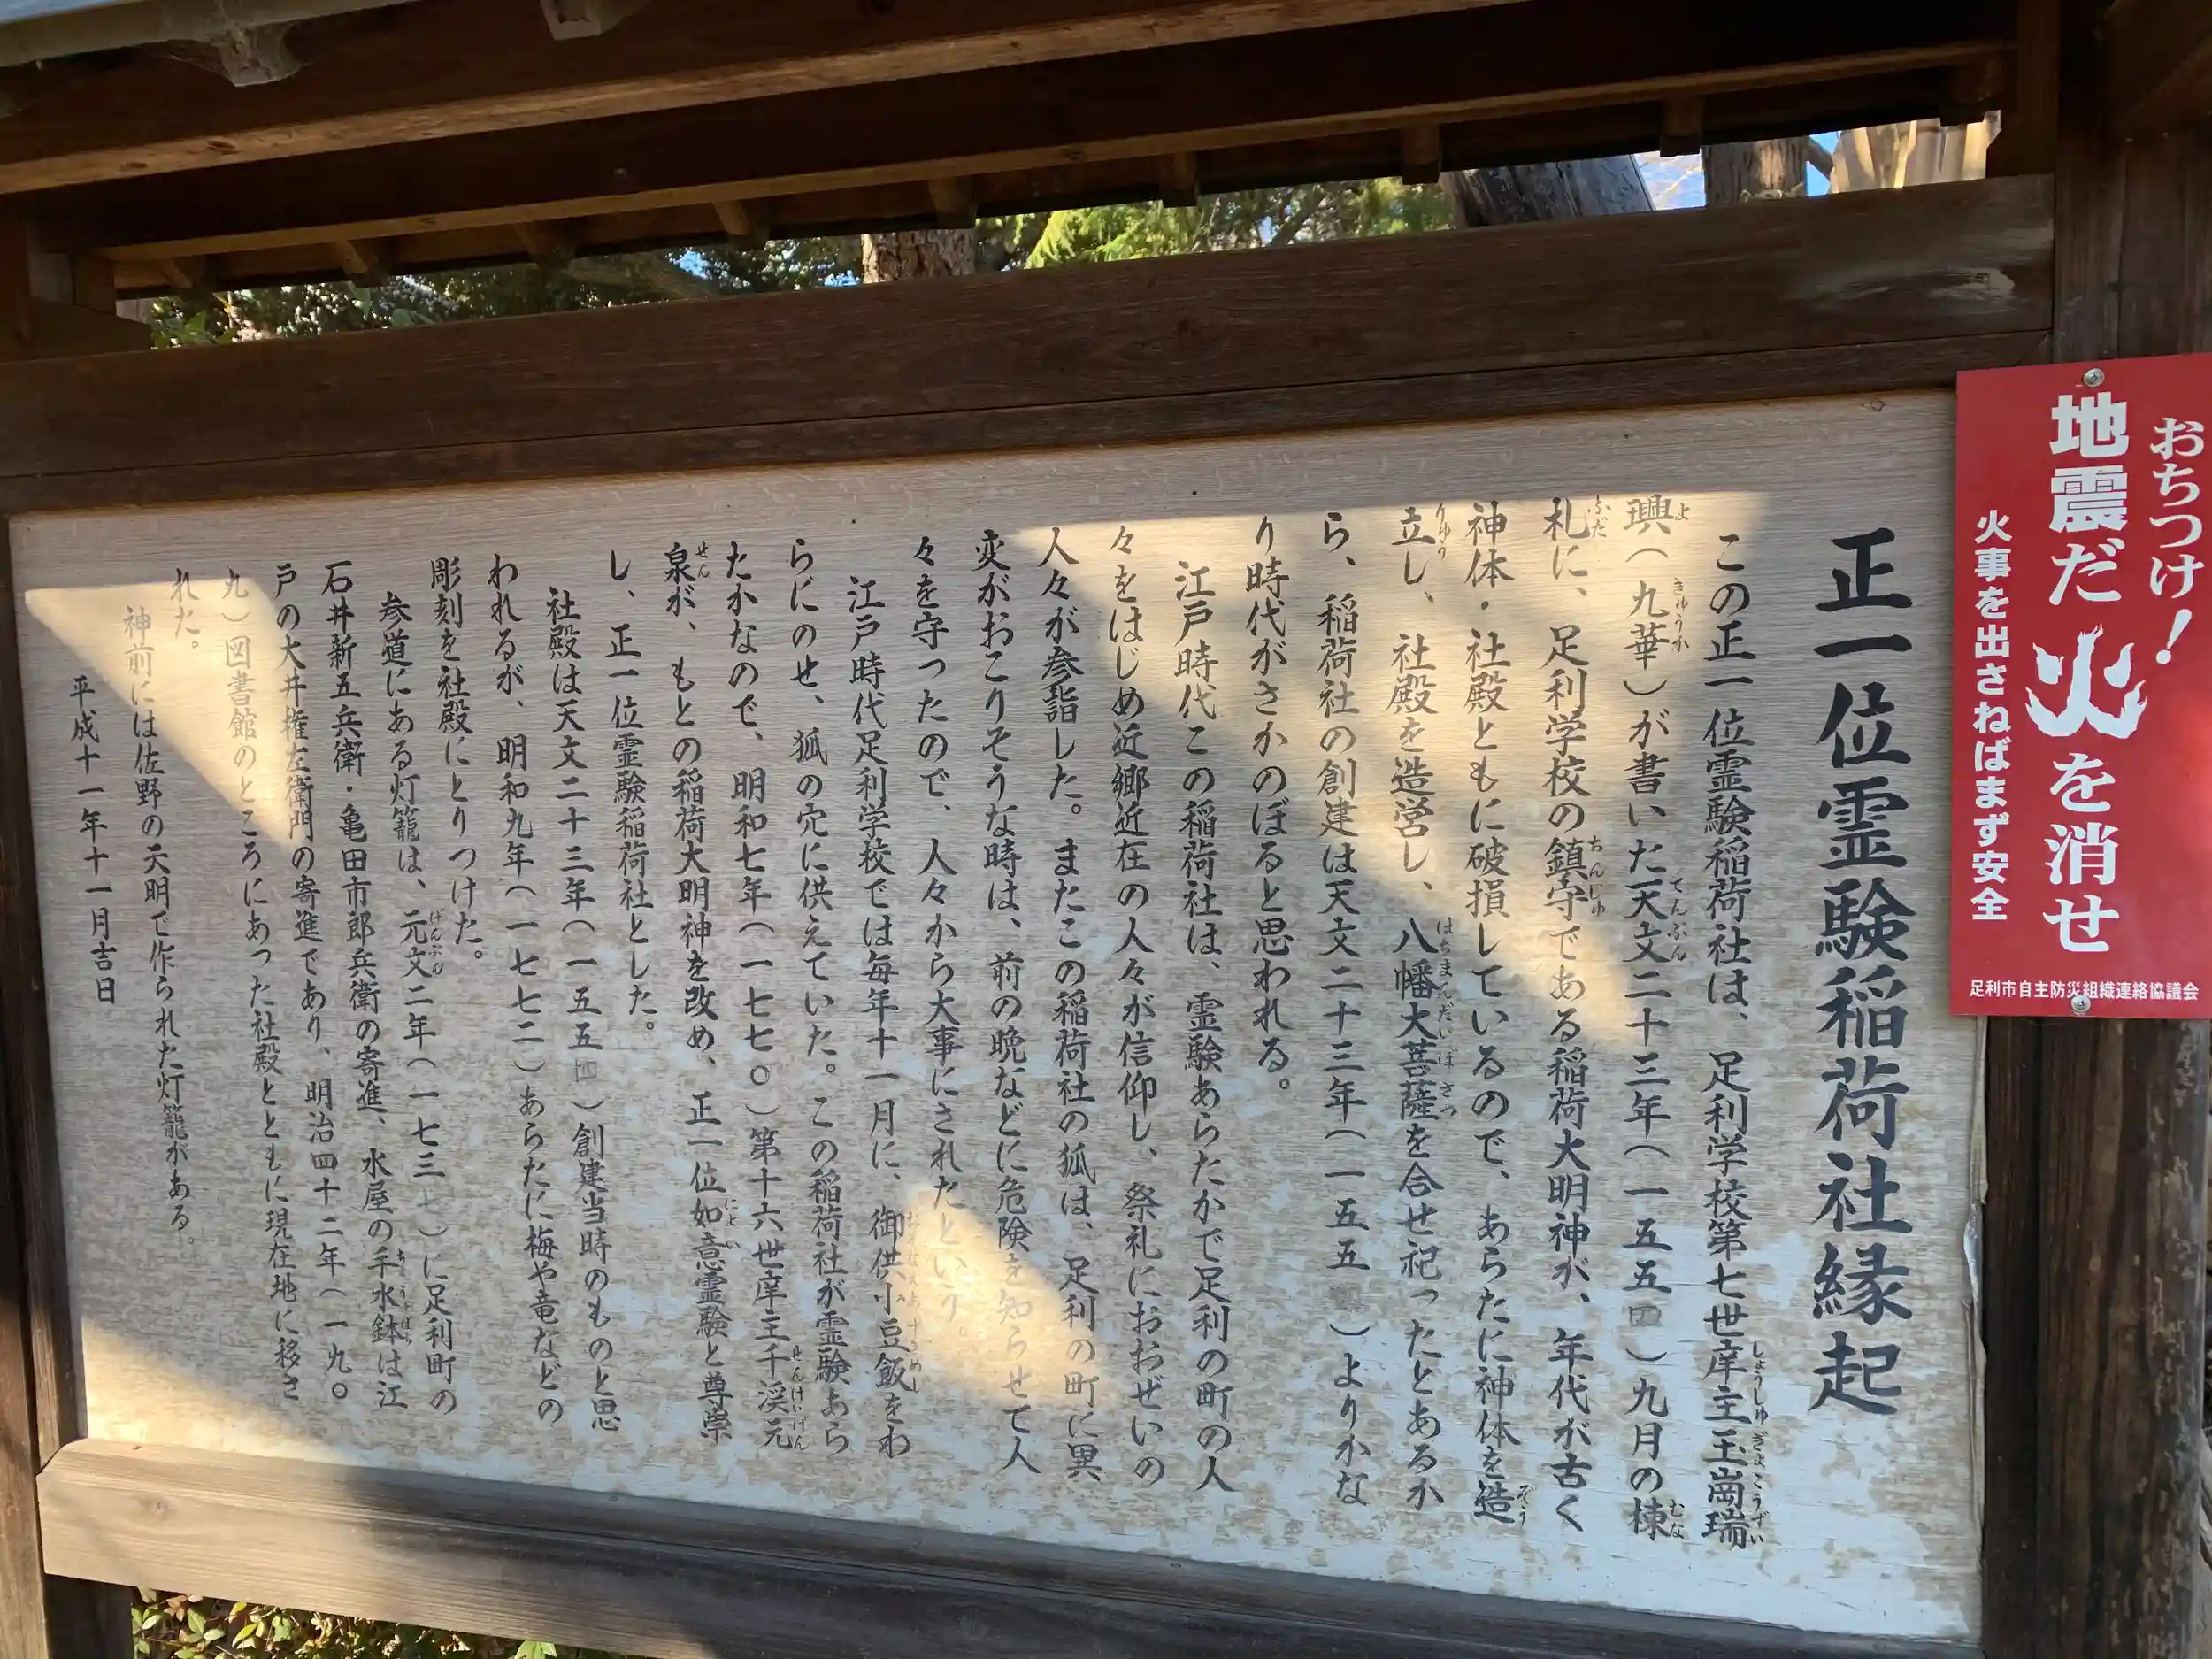 正一位霊験稲荷社縁起
この正一位霊験稲荷社は、足利学校第七世庠主玉崗瑞
璵（九華）が書いた天文二十三年（一五五四）九月の棟
札に、足利学校の鎮守である稲荷大明神が、年代が古く
神体・社殿ともに破損しているので、あらたに神体を造
立し、社殿を造営し、八幡大菩薩を合せ祀ったとあるか
ら、稲荷社の創建は天文二十三年（一五五　）よりかな
り時代がさかのぼると思われる。
江戸時代この稲荷社は、霊験あらたかで足利の町の人
々をはじめ近郷近在の人々が信仰し、祭礼におおぜいの
人々が参詣した。またこの稲荷社の狐は、足利の町に異
変がおこりそうな時は、前の晩などに危険を知らせて人
々を守ったので、人々から大事にされたという。
江戸時代足利学校では毎年十一月に、御供小豆飯をわ
らにのせ、狐の穴に供えていた。この稲荷社が霊験あら
たかなので、明和七年（一七七〇）第十六世庠主千渓元
泉が、もとの稲荷大明神を改め、正一位如意霊験と尊崇
し、正一位霊験稲荷社とした。
社殿は天文二十三年（一五五四）創建当時のものと思
われるが、明和九年（一七七二）あらたに梅や竜などの
彫刻を社殿にとりつけた。
参道にある灯籠は、元文二年（一七三七）に足利町の
石井新五兵衛・亀田市郎兵衛の寄進、水屋の手水鉢は江
戸の大井権左衛門の寄進であり、明治四十二年（一九〇
九）図書館のところにあった社殿とともに現在地に移さ
れた。
神前には佐野の天明で作られた灯籠がある。
平成十一年十一月吉日
おちつけ！
地震だ火を消せ
火事を出さねばまず安全
足利市自主防災組織連絡協議会